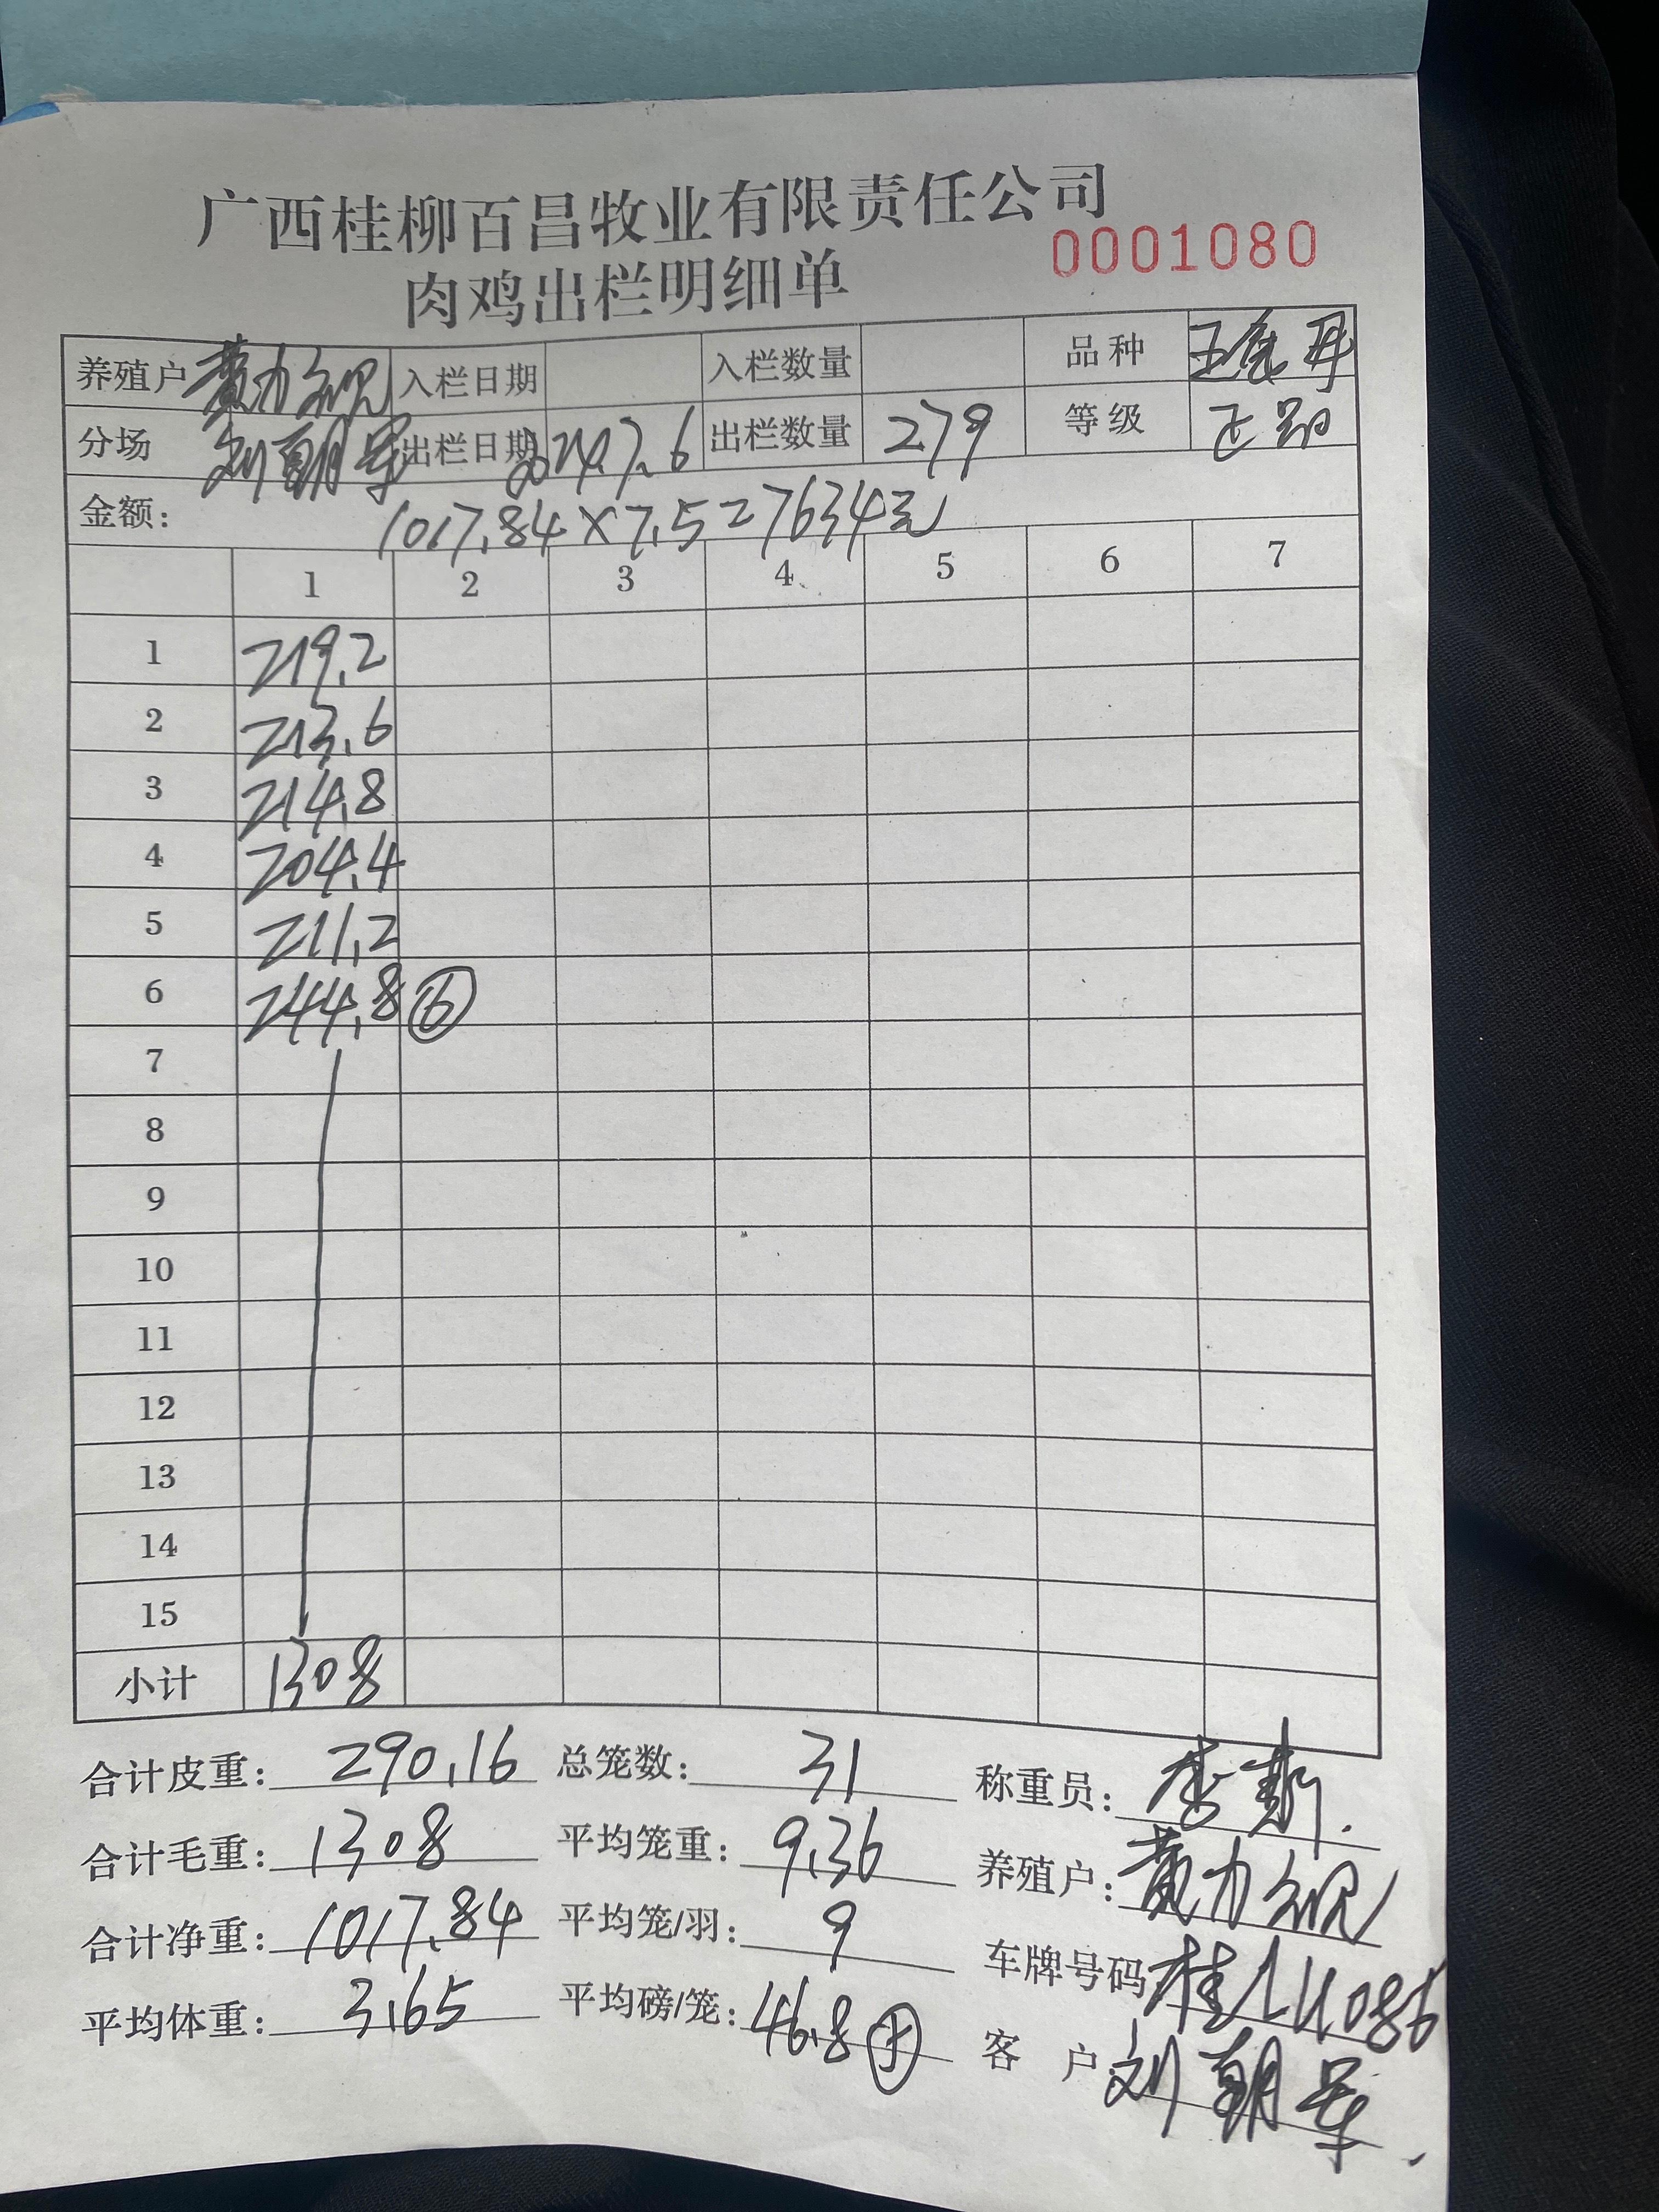 广西桂柳百昌牧业有限责任公司
肉鸡出栏明细单 0001080
养殖户 黄力 入栏日期 入栏数量 品种
分场 刘朝军 出栏日期 2024.7.6 出栏数量 279 等级 正品
金额： 1017.84×7.5=7634元
1 2 3 4 5 6 7
1 219.2
2 213.6
3 214.8
4 204.4
5 211.2
6 244.8 ⑥
7
8
9
10
11
12
13
14
15
小计 1308
合计皮重： 290.16 总笼数： 31 称重员： 李
合计毛重： 1308 平均笼重： 9.36 养殖户： 黄力
合计净重： 1017.84 平均笼/羽： 9 车牌号码
平均体重： 3.65 平均磅/笼： 46.8 客 户： 刘朝军